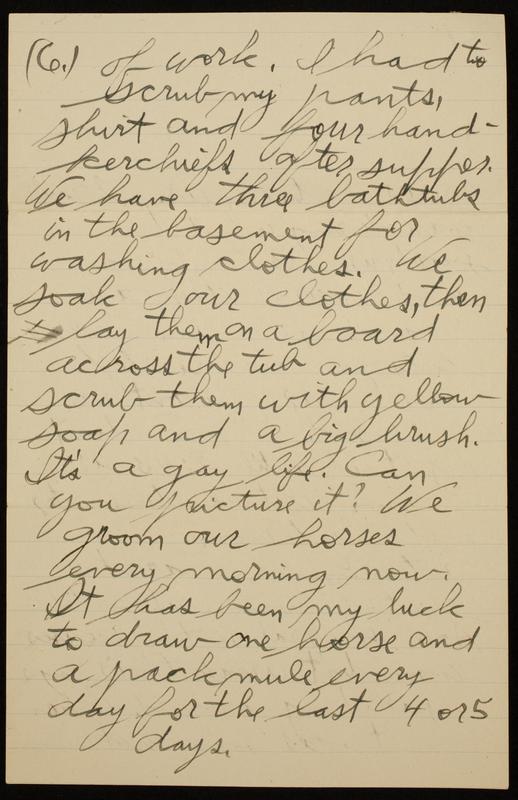 (6.) of work. I had to
scrub my pants,
shirt and four hand-
kerchiefs after supper.
We have three bathtubs
in the basement for
washing clothes. We
soak our clothes, then
lay them on a board
across the tub and
scrub them with yellow
soap and a big brush.
It's a gay life. Can
you picture it? We
groom our horses
every morning now.
It has been my luck
to draw one horse and
a pack mule every
day for the last 4 or 5
days.